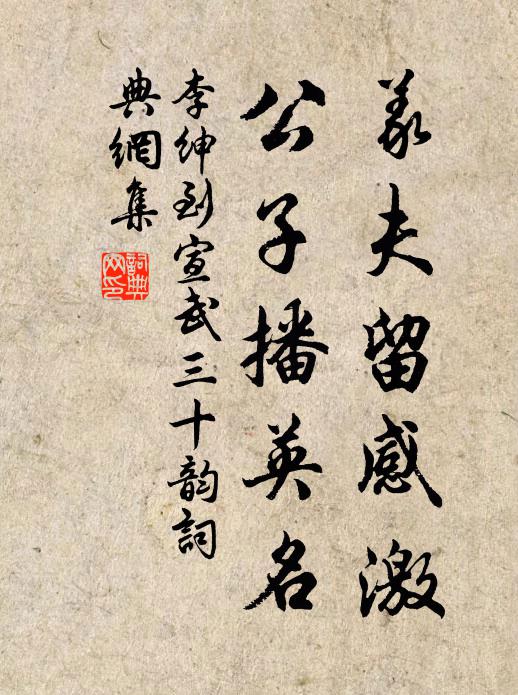 义夫留感激
公子播英名
李绅到宣武三十韵词
典网集
词典
网印